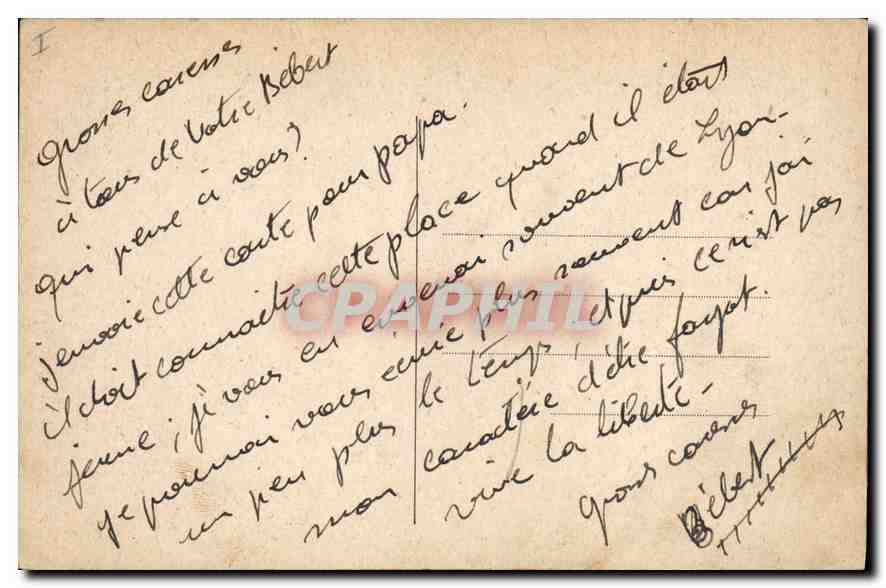 I
grosses caresses
à tous de Votre Bébert
qui pense à vous ?
j'envoie cette carte pour papa.
il doit connaitre cette place quand il était
jeune ; je vous en enverrai souvent de Lyon.
je pourrai vous écrire plus souvent car j'ai
un peu plus le temps, et puis ce n'est pas
mon caractère d'être fayot.
vive la liberté -
grosses caresses
Bébert
CPAPHIL